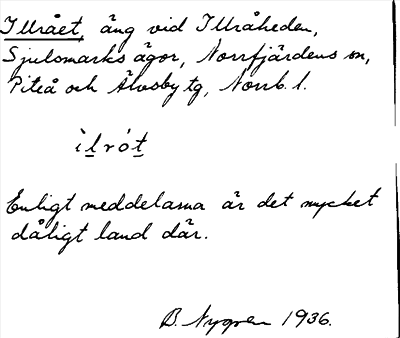 Illrået, äng vid Illråheden,
Sjulsmarks ägor, Norrfjärdens sn,
Piteå och Älvsby tg, Norrb. l.
ìlrót
Enligt meddelarna är det mycket
dåligt land där.
B. Nygren 1936.